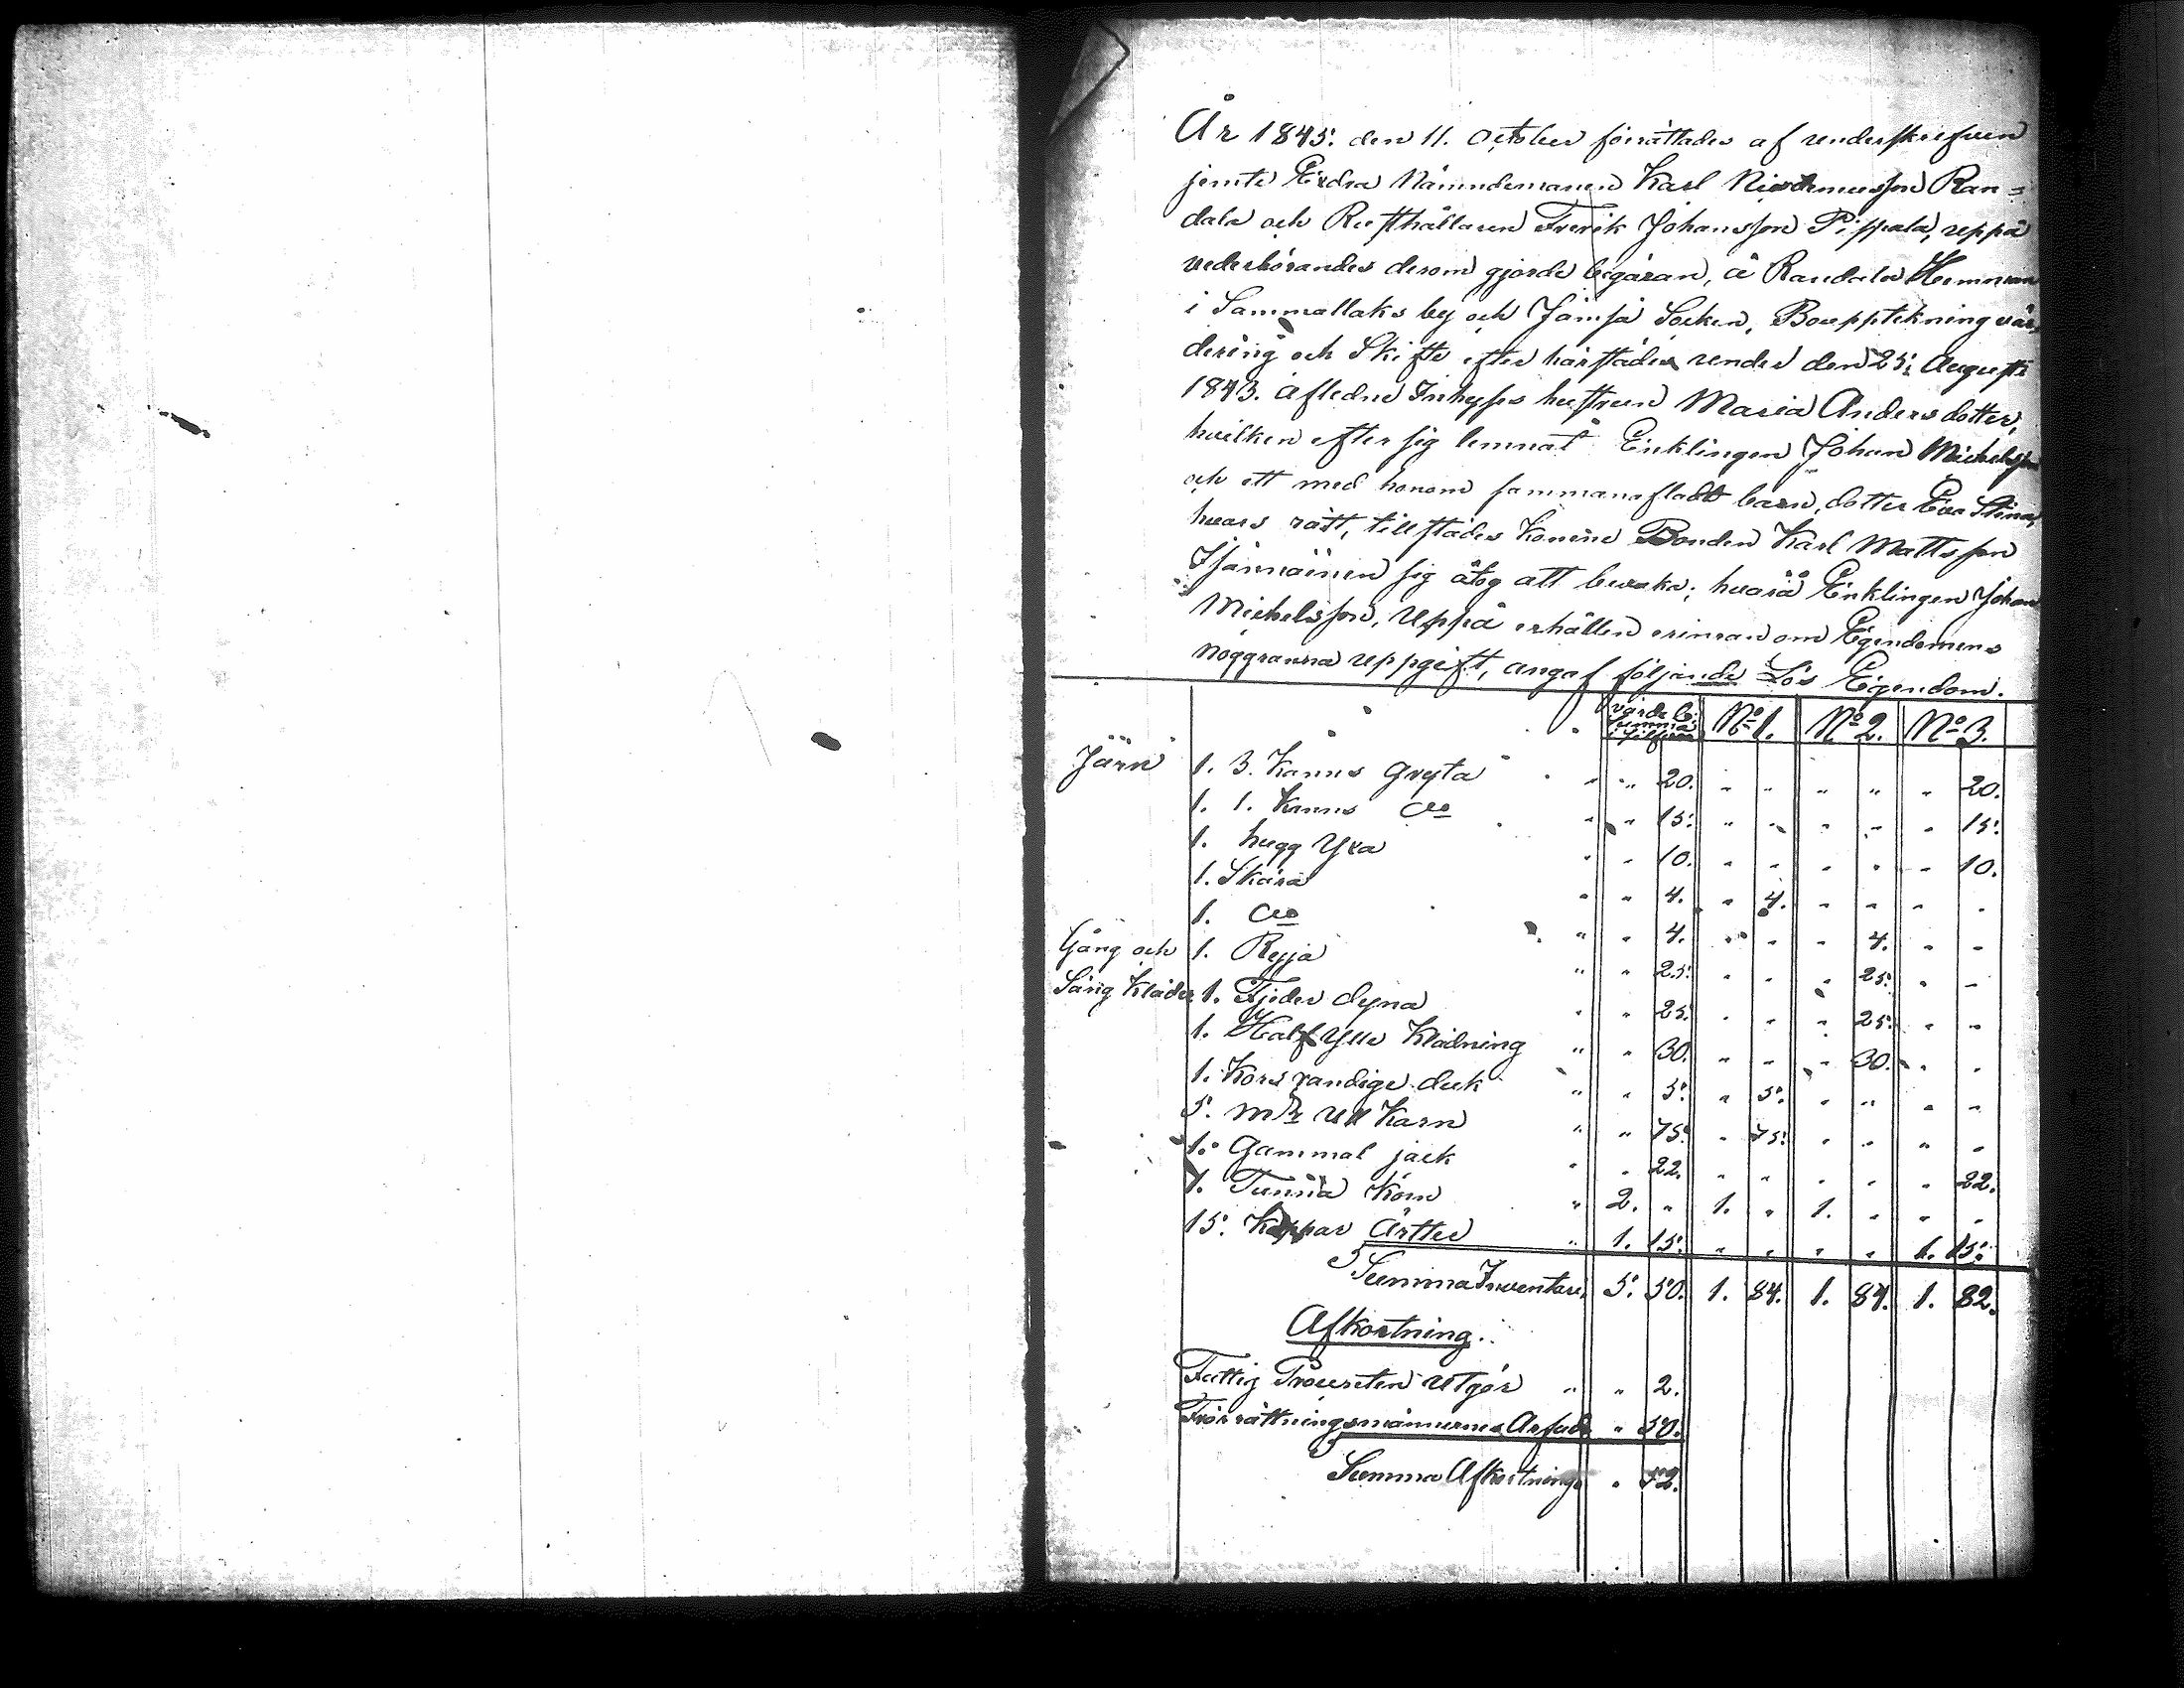 År 1845. den 11. October förrättades af underskrefven
jemte Nämndemanen Karl Ran=
dala och Rusthållaren Fredrik Johansson uppå
vederbörandes derom gjorde begäran, å Randala Hemman
i Sammallaks by och Jämsä Socken, Boupptekning vär,
dering och Skifte efter härstädes under den 25: Augusti
1843. afledne Inhyses hustrun Maria Anders dotter,
hvilken efter sig lemnat Enklingen Johan Michelsson
och ett med honom sammanafladt barn, dotter Eva Stina,
hvars rätt, tillstädes Komne Bonden Karl Mattsson
sig åtog att bevaka; hvarå Enklingen Johan
Michelsson, Uppå erhållen erinran om Egendomens
noggranna uppgift, angaf följande Lös Egendom.
värde Nº 1. Nº 2. Nº 3.
Järn 1. 3. Kanns Gryta " " 20. " " " " " 20.
1. 1. Kanns do " " 15. " " " " " 15.
1. hugg Yxa " " 10. " " " " " 10.
1. Skära " " 4. " 4. " " " "
1. do " " 4. " " " 4. " "
Gång och 1. Ryja " " 25. " " " 25. " "
Säng Kläder 1. Fjeder dyna " " 25. " " " 25. " "
1. Half Ylle Klädning " " 30. " " " 30. " "
1. Kors randige duk " " 5. " 5. " " " "
5. mk Ull Karn " " 75. " 75. " " " "
1. Gammal jack " " 22. " " " " " 22.
1. Tunna Korn " 2. " 1. " 1. " " "
15. Kappar Ärtter " 1. 15. " " " " 1. 15.
Summa Inventari 5. 50. 1. 84. 1. 84. 1. 82.
Afkortning.
Fattig Procenten Utgör " " 2.
Förrättningsmännernes Arfvode " 50.
Summa Afkortning " 52.